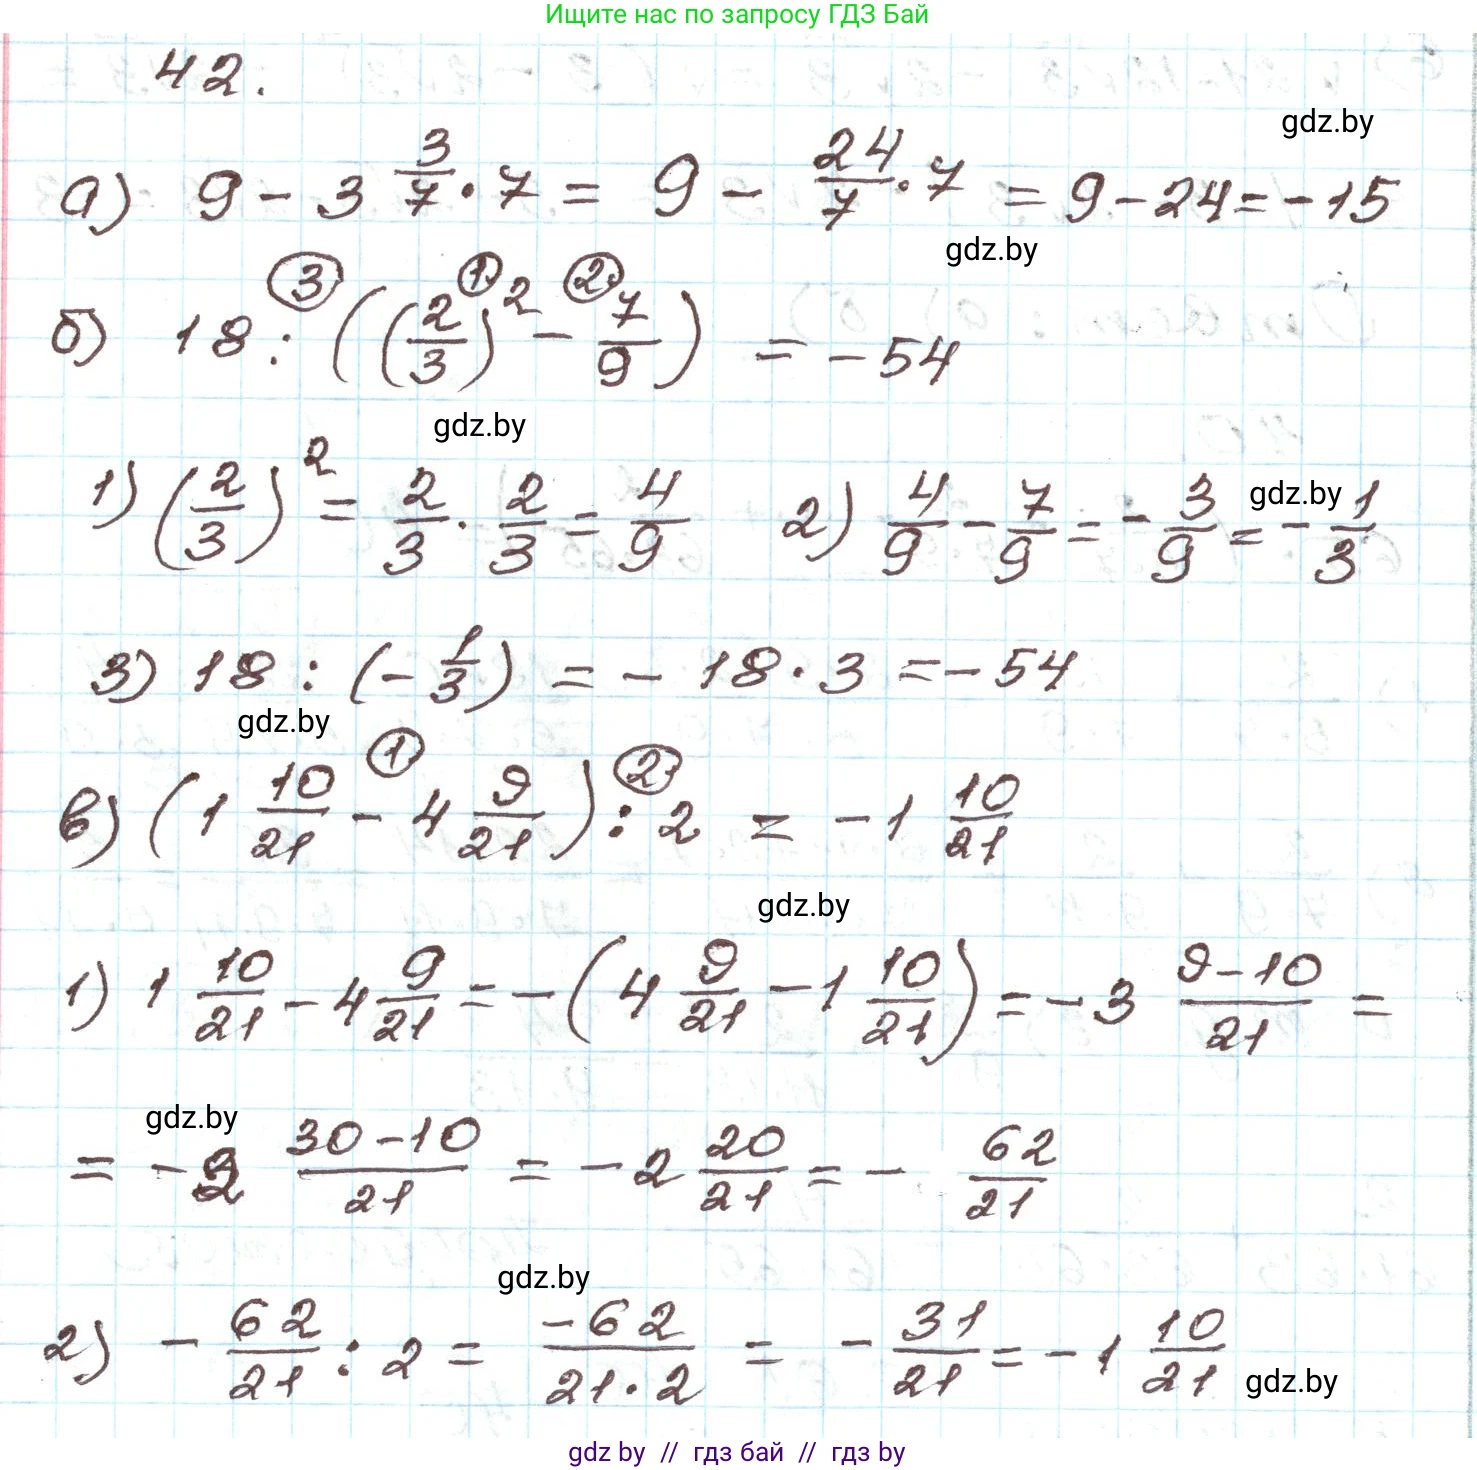 Ищите нас по запросу ГДЗ Бай
42.
gdz.by
а) 9 - 3 3/7 · 7 = 9 - 24/7 · 7 = 9 - 24 = - 15
gdz.by
③ ① ②
б) 18 : ((2/3)² - 7/9) = - 54
gdz.by
1) (2/3)² = 2/3 · 2/3 = 4/9 2) 4/9 - 7/9 = - 3/9 = - 1/3
gdz.by
3) 18 : (- 1/3) = - 18 · 3 = - 54
gdz.by
① ②
в) (1 10/21 - 4 9/21) : 2 = - 1 10/21
gdz.by
1) 1 10/21 - 4 9/21 = - (4 9/21 - 1 10/21) = - 3 (9 - 10)/21 =
gdz.by
= - 2 (30 - 10)/21 = - 2 20/21 = - 62/21
gdz.by
2) - 62/21 : 2 = (- 62)/(21 · 2) = - 31/21 = - 1 10/21
gdz.by
gdz by // гдз бай // гдз by